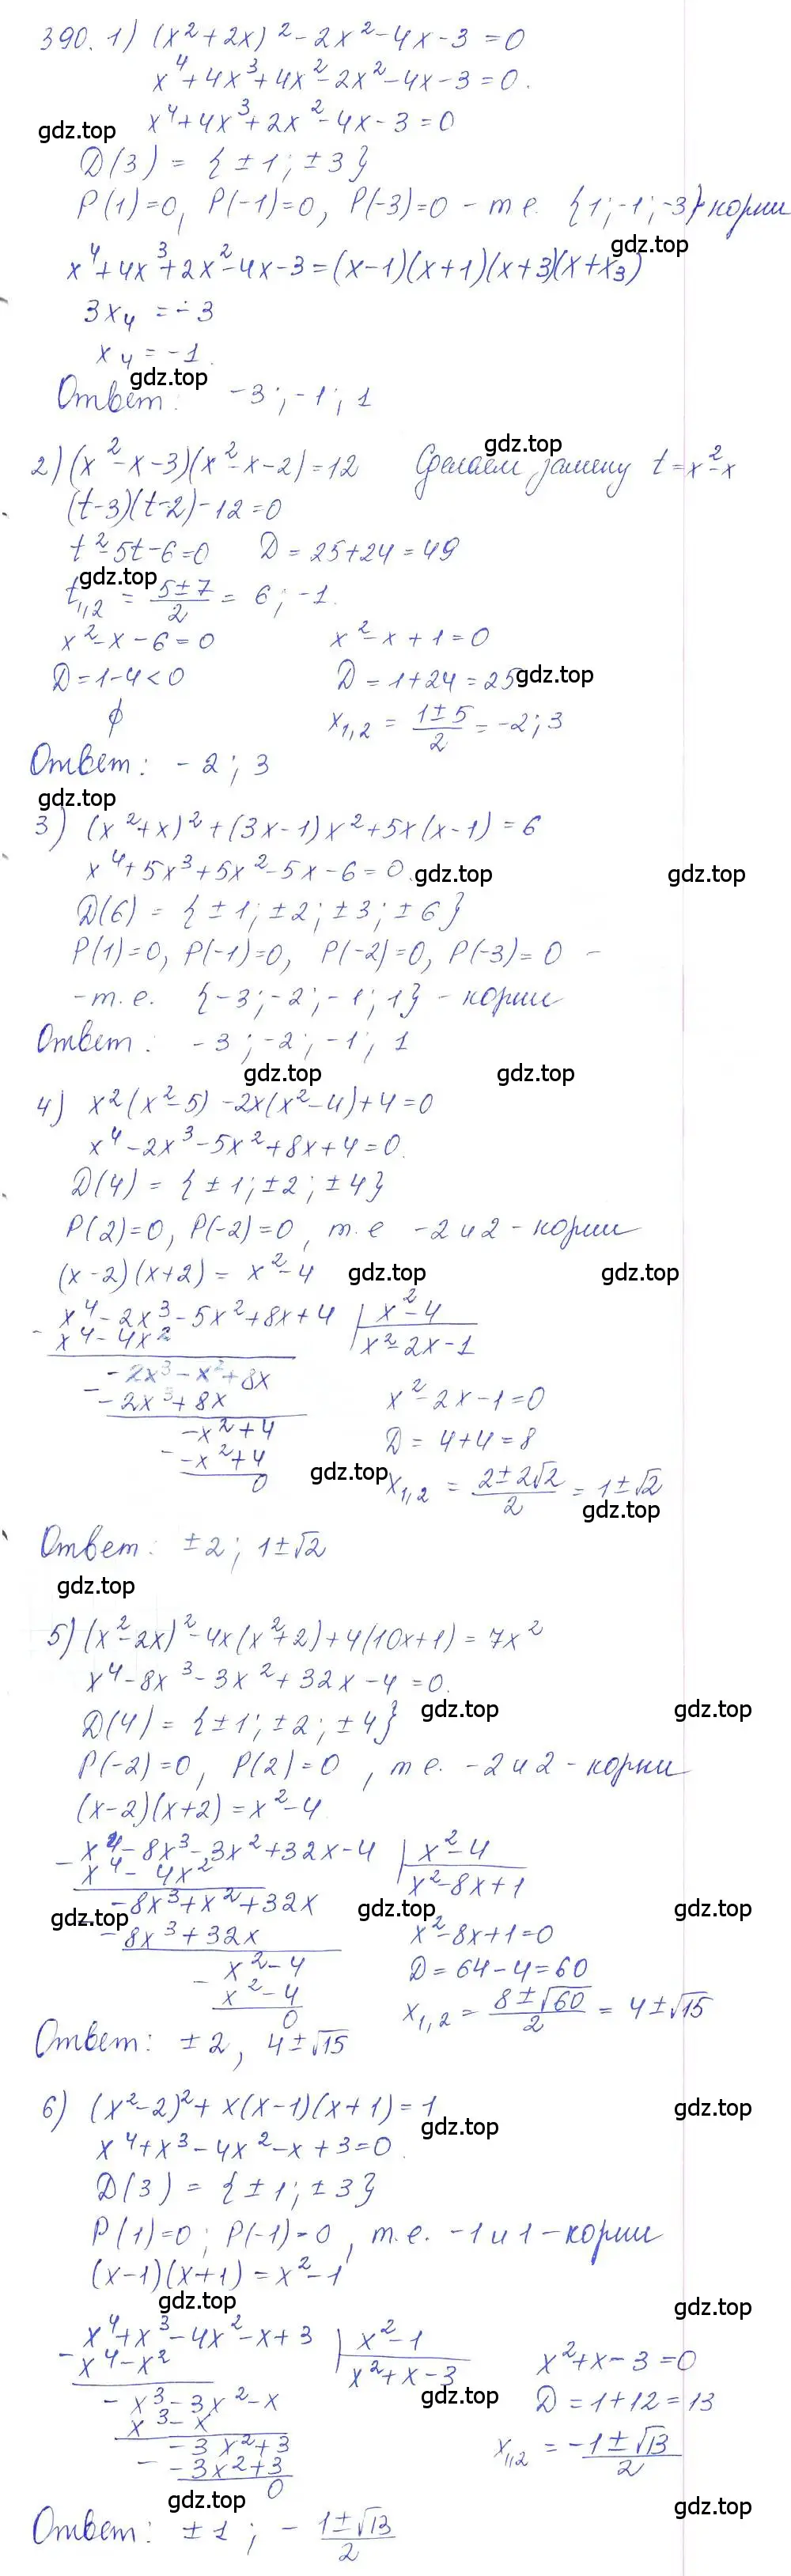 390. 1) (x²+2x)²-2x²-4x-3=0
x⁴+4x³+4x²-2x²-4x-3=0.
x⁴+4x³+2x²-4x-3=0
gdz.top
D(3) = {±1; ±3}
P(1)=0, P(-1)=0, P(-3)=0 - т е. {1;-1;-3}-корни
gdz.top
x⁴+4x³+2x²-4x-3=(x-1)(x+1)(x+3)(x+x₃)
3x₄ = -3
x₄ = -1.
gdz.top
Ответ: -3; -1; 1
gdz.top
2) (x²-x-3)(x²-x-2)=12 Сделаем замену t=x²-x
(t-3)(t-2)-12=0
t²-5t-6=0 D=25+24=49
gdz.top
t₁,₂ = (5±7)/2 = 6; -1.
x²-x-6=0 x²-x+1=0
D=1-4<0 D=1+24=25
gdz.top
ϕ x₁,₂ = (1±5)/2 = -2; 3
Ответ: -2; 3
gdz.top
3) (x²+x)²+(3x-1)x²+5x(x-1)=6
x⁴+5x³+5x²-5x-6=0.
gdz.top gdz.top
D(6) = {±1; ±2; ±3; ±6}
P(1)=0, P(-1)=0, P(-2)=0, P(-3)=0 -
-т.е. {-3;-2;-1;1} - корни
Ответ: -3; -2; -1; 1
gdz.top gdz.top
4) x²(x²-5)-2x(x²-4)+4=0
x⁴-2x³-5x²+8x+4=0.
D(4) = {±1; ±2; ±4}
P(2)=0, P(-2)=0, т.е -2 и 2 - корни
(x-2)(x+2) = x²-4
gdz.top gdz.top
x⁴-2x³-5x²+8x+4 | x²-4
- x⁴-4x² x²-2x-1
-2x³-x²+8x
- -2x³+8x x²-2x-1=0
-x²+4 D=4+4=8
- -x²+4
gdz.top
0 x₁,₂ = (2±2√2)/2 = 1±√2
gdz.top
Ответ: ±2; 1±√2
gdz.top
5) (x²-2x)²-4x(x²+2)+4(10x+1)=7x²
x⁴-8x³-3x²+32x-4=0.
gdz.top gdz.top
D(4) = {±1; ±2; ±4}
P(-2)=0, P(2)=0, т е. -2 и 2 - корни
(x-2)(x+2)=x²-4
x⁴-8x³-3x²+32x-4 | x²-4
- x⁴-4x² x²-8x+1
-8x³+x²+32x
gdz.top gdz.top gdz.top
- -8x³+32x x²-8x+1=0
x²-4 D=64-4=60
- x²-4
0 x₁,₂ = (8±√60)/2 = 4±√15
Ответ: ±2, 4±√15
6) (x²-2)²+x(x-1)(x+1)=1
gdz.top
gdz.top
x⁴+x³-4x²-x+3=0.
D(3) = {±1; ±3}
P(1)=0; P(-1)=0, т.е. -1 и 1 - корни
(x-1)(x+1)=x²-1
gdz.top gdz.top
x⁴+x³-4x²-x+3 | x²-1
- x⁴-x² x²+x-3 x²+x-3=0
gdz.top
- x³-3x²-x D=1+12=13
x³-x
-3x²+3 x₁,₂ = (-1±√13)/2
- -3x²+3
0
gdz.top gdz.top
Ответ: ±1; -(1±√13)/2